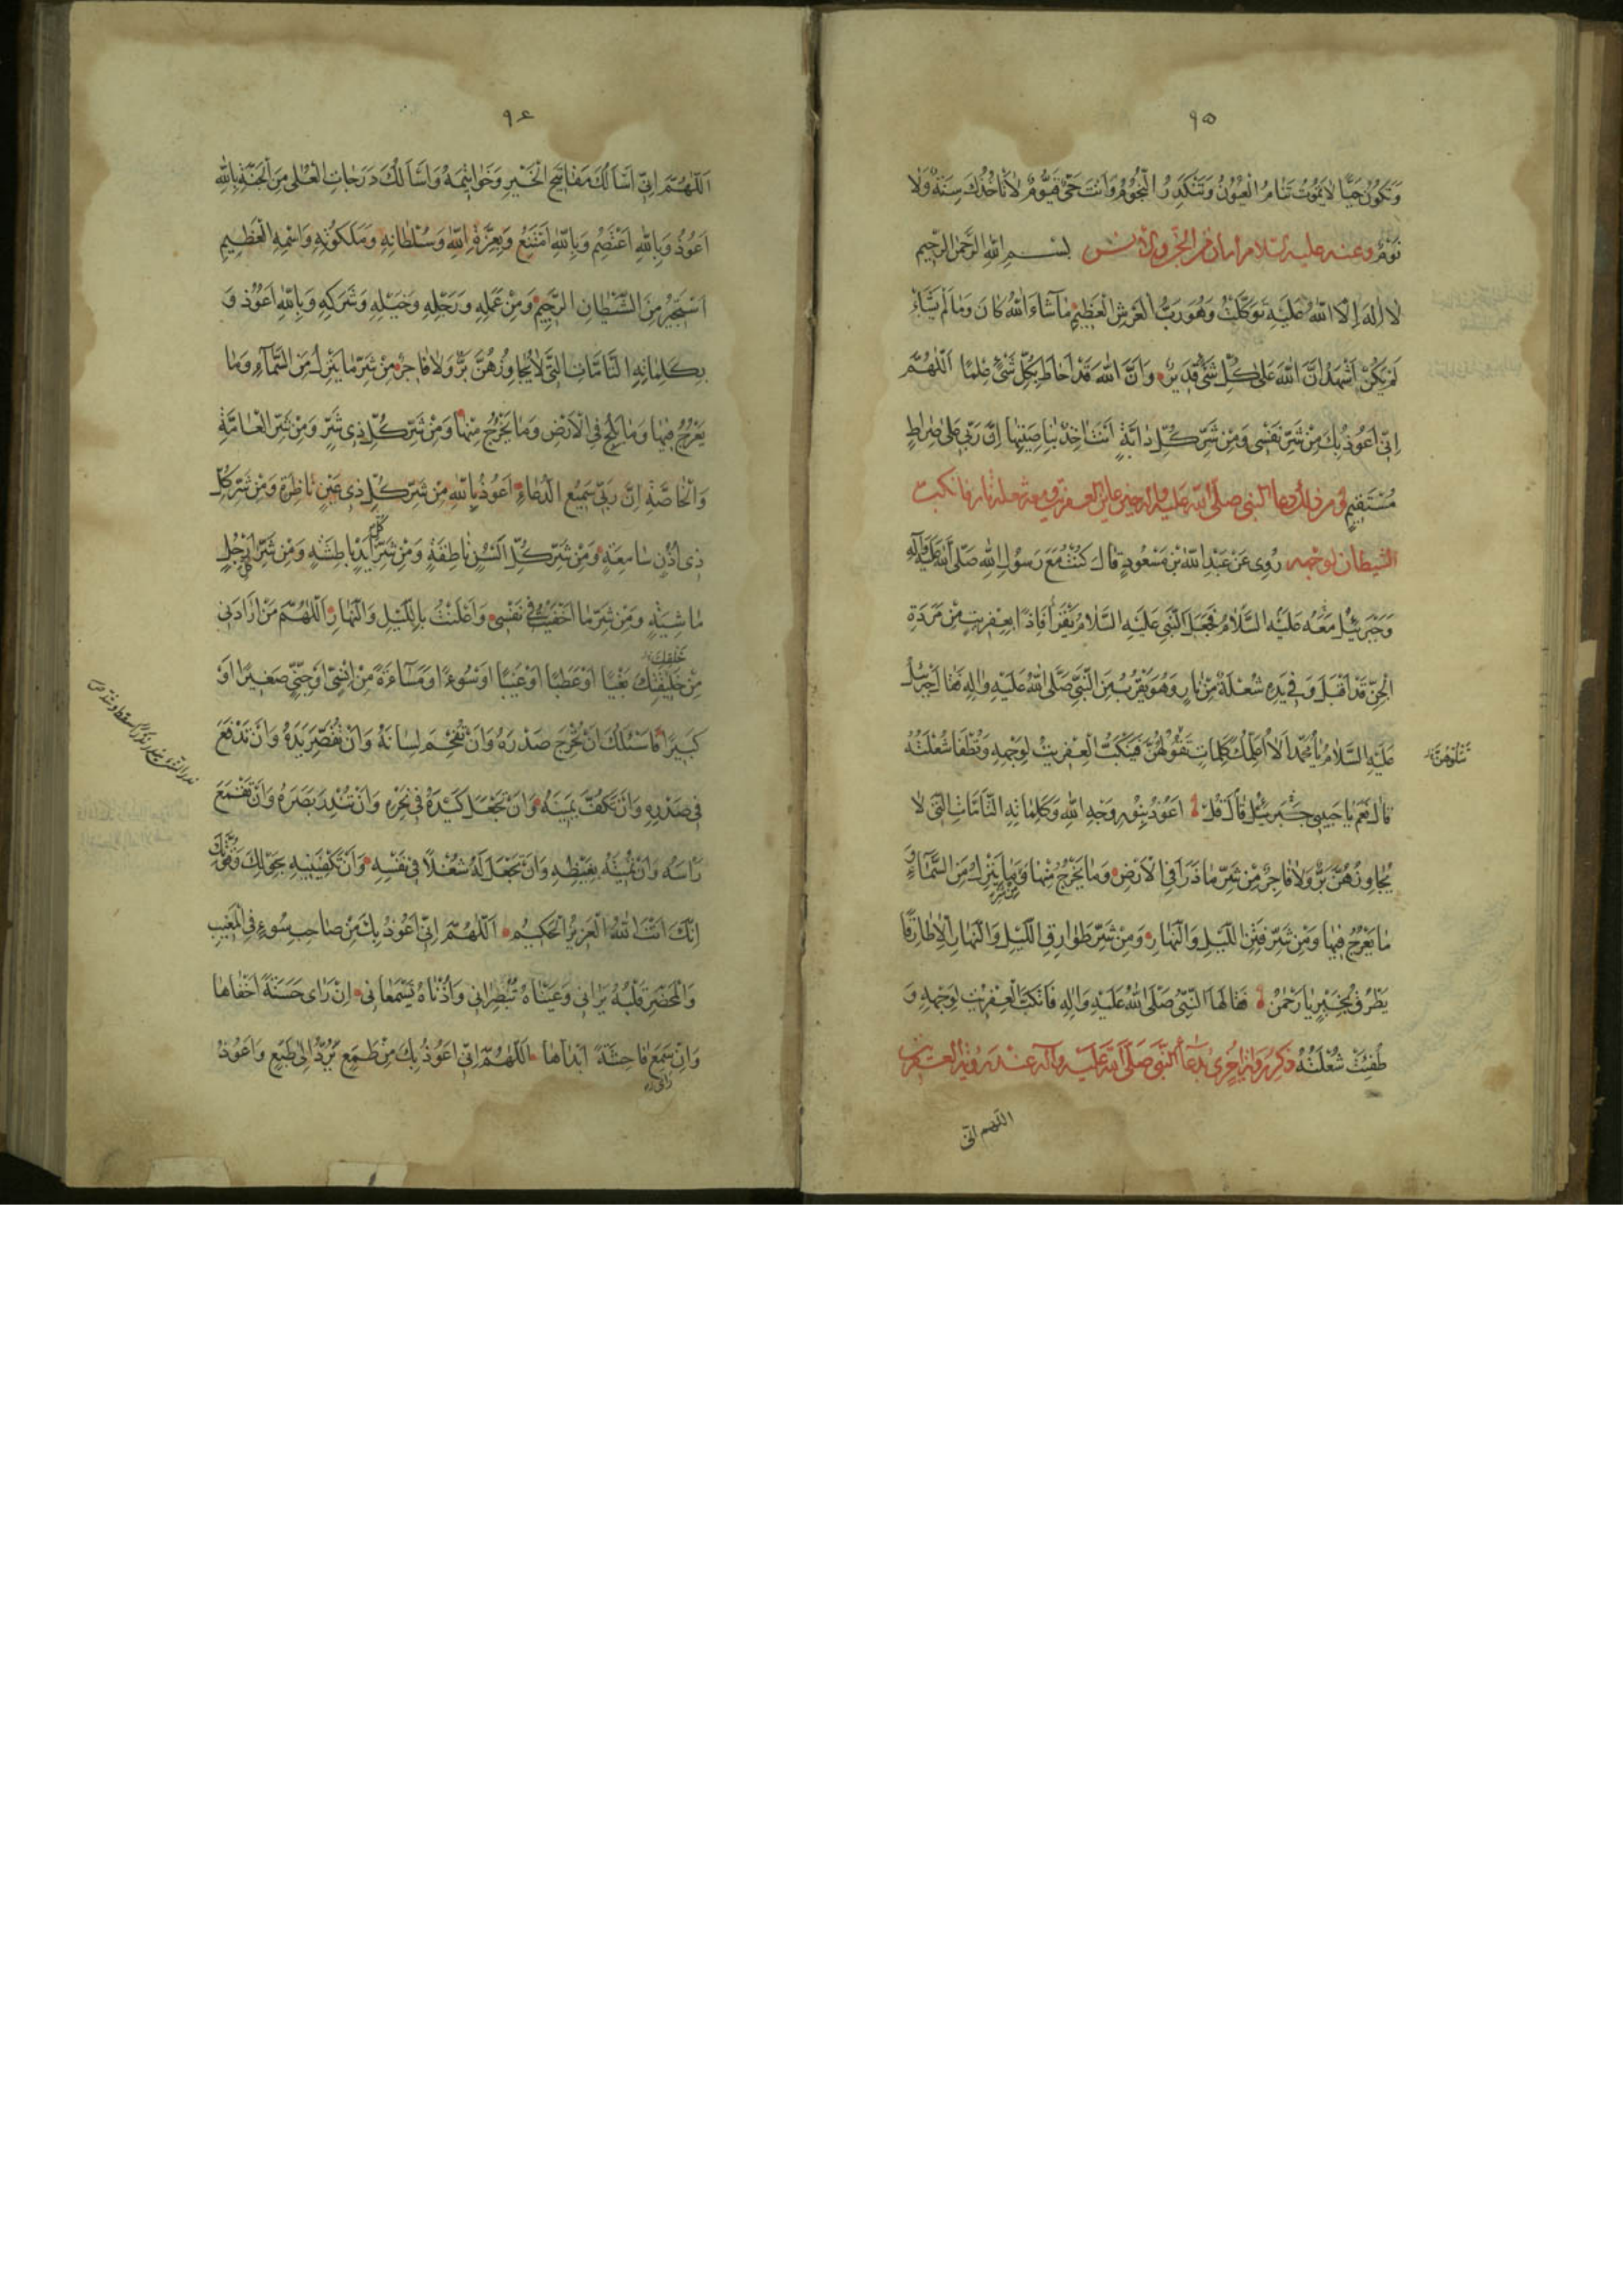 ٩٥
وَتَكُونُ حَيًّا لَا يَمُوتُ تَنَامُ الْعُيُونُ وَتَنْكَدِرُ النُّجُومُ وَأَنْتَ حَيٌّ قَيُّومٌ لَا تَأْخُذُكَ سِنَةٌ وَلَا
نَوْمٌ وعنه عليه السلام امان من الجن والانس بِسْمِ اللّٰهِ الرَّحْمٰنِ الرَّحِيمِ
لَا إِلٰهَ إِلَّا اللّٰهُ عَلَيْهِ تَوَكَّلْتُ وَهُوَ رَبُّ الْعَرْشِ الْعَظِيمِ مَا شَاءَ اللّٰهُ كَانَ وَمَا لَمْ يَشَأْ
لَمْ يَكُنْ أَشْهَدُ أَنَّ اللّٰهَ عَلَى كُلِّ شَيْءٍ قَدِيرٌ وَأَنَّ اللّٰهَ قَدْ أَحَاطَ بِكُلِّ شَيْءٍ عِلْمًا اَللّٰهُمَّ
إِنِّي أَعُوذُ بِكَ مِنْ شَرِّ نَفْسِي وَمِنْ شَرِّ كُلِّ دَابَّةٍ أَنْتَ آخِذٌ بِنَاصِيَتِهَا إِنَّ رَبِّي عَلَى صِرَاطٍ
مُسْتَقِيمٍ ومن ذلك دعا النبي صلى الله عليه وآله حين عاين العفريت ومعه شعلة نار فانكبت
الشيطان لوجهه رُوِيَ عَنْ عَبْدِ اللّٰهِ بْنِ مَسْعُودٍ قَالَ كُنْتُ مَعَ رَسُولِ اللّٰهِ صَلَّى اللّٰهُ عَلَيْهِ وَآلِهِ
وَجَبْرَئِيلُ مَعَهُ عَلَيْهِ السَّلَامُ فَجَعَلَ النَّبِيُّ عَلَيْهِ السَّلَامُ يَقْرَأُ فَإِذًا بِعِفْرِيتٍ مِنْ مَرَدَةِ
الْجِنِّ قَدْ أَقْبَلَ وَفِي يَدِهِ شُعْلَةٌ مِنْ نَارٍ وَهُوَ يَقْرُبُ مِنَ النَّبِيِّ صَلَّى اللّٰهُ عَلَيْهِ وَآلِهِ فَقَالَ جَبْرَئِيلُ
عَلَيْهِ السَّلَامُ يَا مُحَمَّدُ أَلَا أُعَلِّمُكَ كَلِمَاتٍ تَقُولُهُنَّ فَيَنْكَبُّ الْعِفْرِيتُ لِوَجْهِهِ وَتُطْفَأُ شُعْلَتُهُ
تَتْلُوهُنَّ
قَالَ نَعَمْ يَا حَبِيبِي جَبْرَئِيلُ قَالَ قُلْ أَعُوذُ بِنُورِ وَجْهِ اللّٰهِ وَكَلِمَاتِهِ التَّامَّاتِ الَّتِي لَا
يُجَاوِزُهُنَّ بَرٌّ وَلَا فَاجِرٌ مِنْ شَرِّ مَا ذَرَأَ فِي الْأَرْضِ وَمَا يَخْرُجُ مِنْهَا وَمَا يَنْزِلُ مِنَ السَّمَاءِ وَ
مَا يَعْرُجُ فِيهَا وَمِنْ شَرِّ فِتَنِ اللَّيْلِ وَالنَّهَارِ وَمِنْ شَرِّ طَوَارِقِ اللَّيْلِ وَالنَّهَارِ إِلَّا طَارِقًا
يَطْرُقُ بِخَيْرٍ يَا رَحْمٰنُ فَقَالَهَا النَّبِيُّ صَلَّى اللّٰهُ عَلَيْهِ وَآلِهِ فَانْكَبَّ الْعِفْرِيتُ لِوَجْهِهِ وَ
طُفِئَتْ شُعْلَتُهُ ذكر رواية أخرى بدعاء النبي صلى الله عليه وآله عند رؤية العفريت
اللهم إني
٩٤
اَللّٰهُمَّ إِنِّي أَسْأَلُكَ مَفَاتِيحَ الْخَيْرِ وَخَوَاتِيمَهُ وَأَسْأَلُكَ دَرَجَاتِ الْعُلَى مِنَ الْجَنَّةِ بِاللّٰهِ
أَعُوذُ وَبِاللّٰهِ أَعْتَصِمُ وَبِاللّٰهِ أَمْتَنِعُ وَبِعِزَّةِ اللّٰهِ وَسُلْطَانِهِ وَمَلَكُوتِهِ وَاسْمِهِ الْعَظِيمِ
أَسْتَجِيرُ مِنَ الشَّيْطَانِ الرَّجِيمِ وَمِنْ عَمَلِهِ وَرَجْلِهِ وَخَيْلِهِ وَشَرَكِهِ وَبِاللّٰهِ أَعُوذُ وَ
بِكَلِمَاتِهِ التَّامَّاتِ الَّتِي لَا يُجَاوِزُهُنَّ بَرٌّ وَلَا فَاجِرٌ مِنْ شَرِّ مَا يَنْزِلُ مِنَ السَّمَاءِ وَمَا
يَعْرُجُ فِيهَا وَمَا يَلِجُ فِي الْأَرْضِ وَمَا يَخْرُجُ مِنْهَا وَمِنْ شَرِّ كُلِّ ذِي شَرٍّ وَمِنْ شَرِّ الْعَامَّةِ
وَالْخَاصَّةِ إِنَّ رَبِّي سَمِيعُ الدُّعَاءِ أَعُوذُ بِاللّٰهِ مِنْ شَرِّ كُلِّ ذِي عَيْنٍ نَاظِرَةٍ وَمِنْ شَرِّ كُلِّ
ذِي أُذُنٍ سَامِعَةٍ وَمِنْ شَرِّ كُلِّ أَلْسُنٍ نَاطِقَةٍ وَمِنْ شَرِّ كُلِّ أَيْدٍ بَاطِشَةٍ وَمِنْ شَرِّ كُلِّ أَرْجُلٍ
مَاشِيَةٍ وَمِنْ شَرِّ مَا أَخْفَيْتُ فِي نَفْسِي وَأَعْلَنْتُ بِاللَّيْلِ وَالنَّهَارِ اَللّٰهُمَّ مَنْ أَرَادَنِي
خَلْقِكَ
مِنْ خَلِيقَتِكَ بَغْيًا أَوْ عَطَبًا أَوْ عَيْبًا أَوْ سُوءًا أَوْ مَسَاءَةً مِنْ إِنْسِيٍّ أَوْ جِنِّيٍّ صَغِيرًا أَوْ
كَبِيرًا فَأَسْئَلُكَ أَنْ تُحْرِجَ صَدْرَهُ وَأَنْ تُفْحِمَ لِسَانَهُ وَأَنْ تُقَصِّرَ يَدَهُ وَأَنْ تَدْفَعَ
فِي صَدْرِهِ وَأَنْ تَكُفَّ يَمِينَهُ وَأَنْ تَجْعَلَ كَيْدَهُ فِي نَحْرِهِ وَأَنْ تُنْدِرَ بَصَرَهُ وَأَنْ تَقْمَعَ
رَأْسَهُ وَأَنْ تُمِيتَهُ بِغَيْظِهِ وَأَنْ تَجْعَلَ لَهُ شُغْلًا فِي نَفْسِهِ وَأَنْ تَكْفِيَنِيهِ بِحَوْلِكَ وَقُوَّتِكَ
إِنَّكَ أَنْتَ اللّٰهُ الْعَزِيزُ الْحَكِيمُ اَللّٰهُمَّ إِنِّي أَعُوذُ بِكَ مِنْ صَاحِبِ سُوءٍ فِي الْمَغِيبِ
وَالْمَحْضَرِ قَلْبُهُ يَرَانِي وَعَيْنَاهُ تُبْصِرَانِي وَأُذُنَاهُ يَسْمَعَانِي إِنْ رَأَى حَسَنَةً أَخْفَاهَا
وَإِنْ سَمِعَ فَاحِشَةً أَبْدَاهَا اَللّٰهُمَّ إِنِّي أَعُوذُ بِكَ مِنْ طَمَعٍ يُرَدُّ إِلَى طَبَعٍ وَأَعُوذُ
رأى